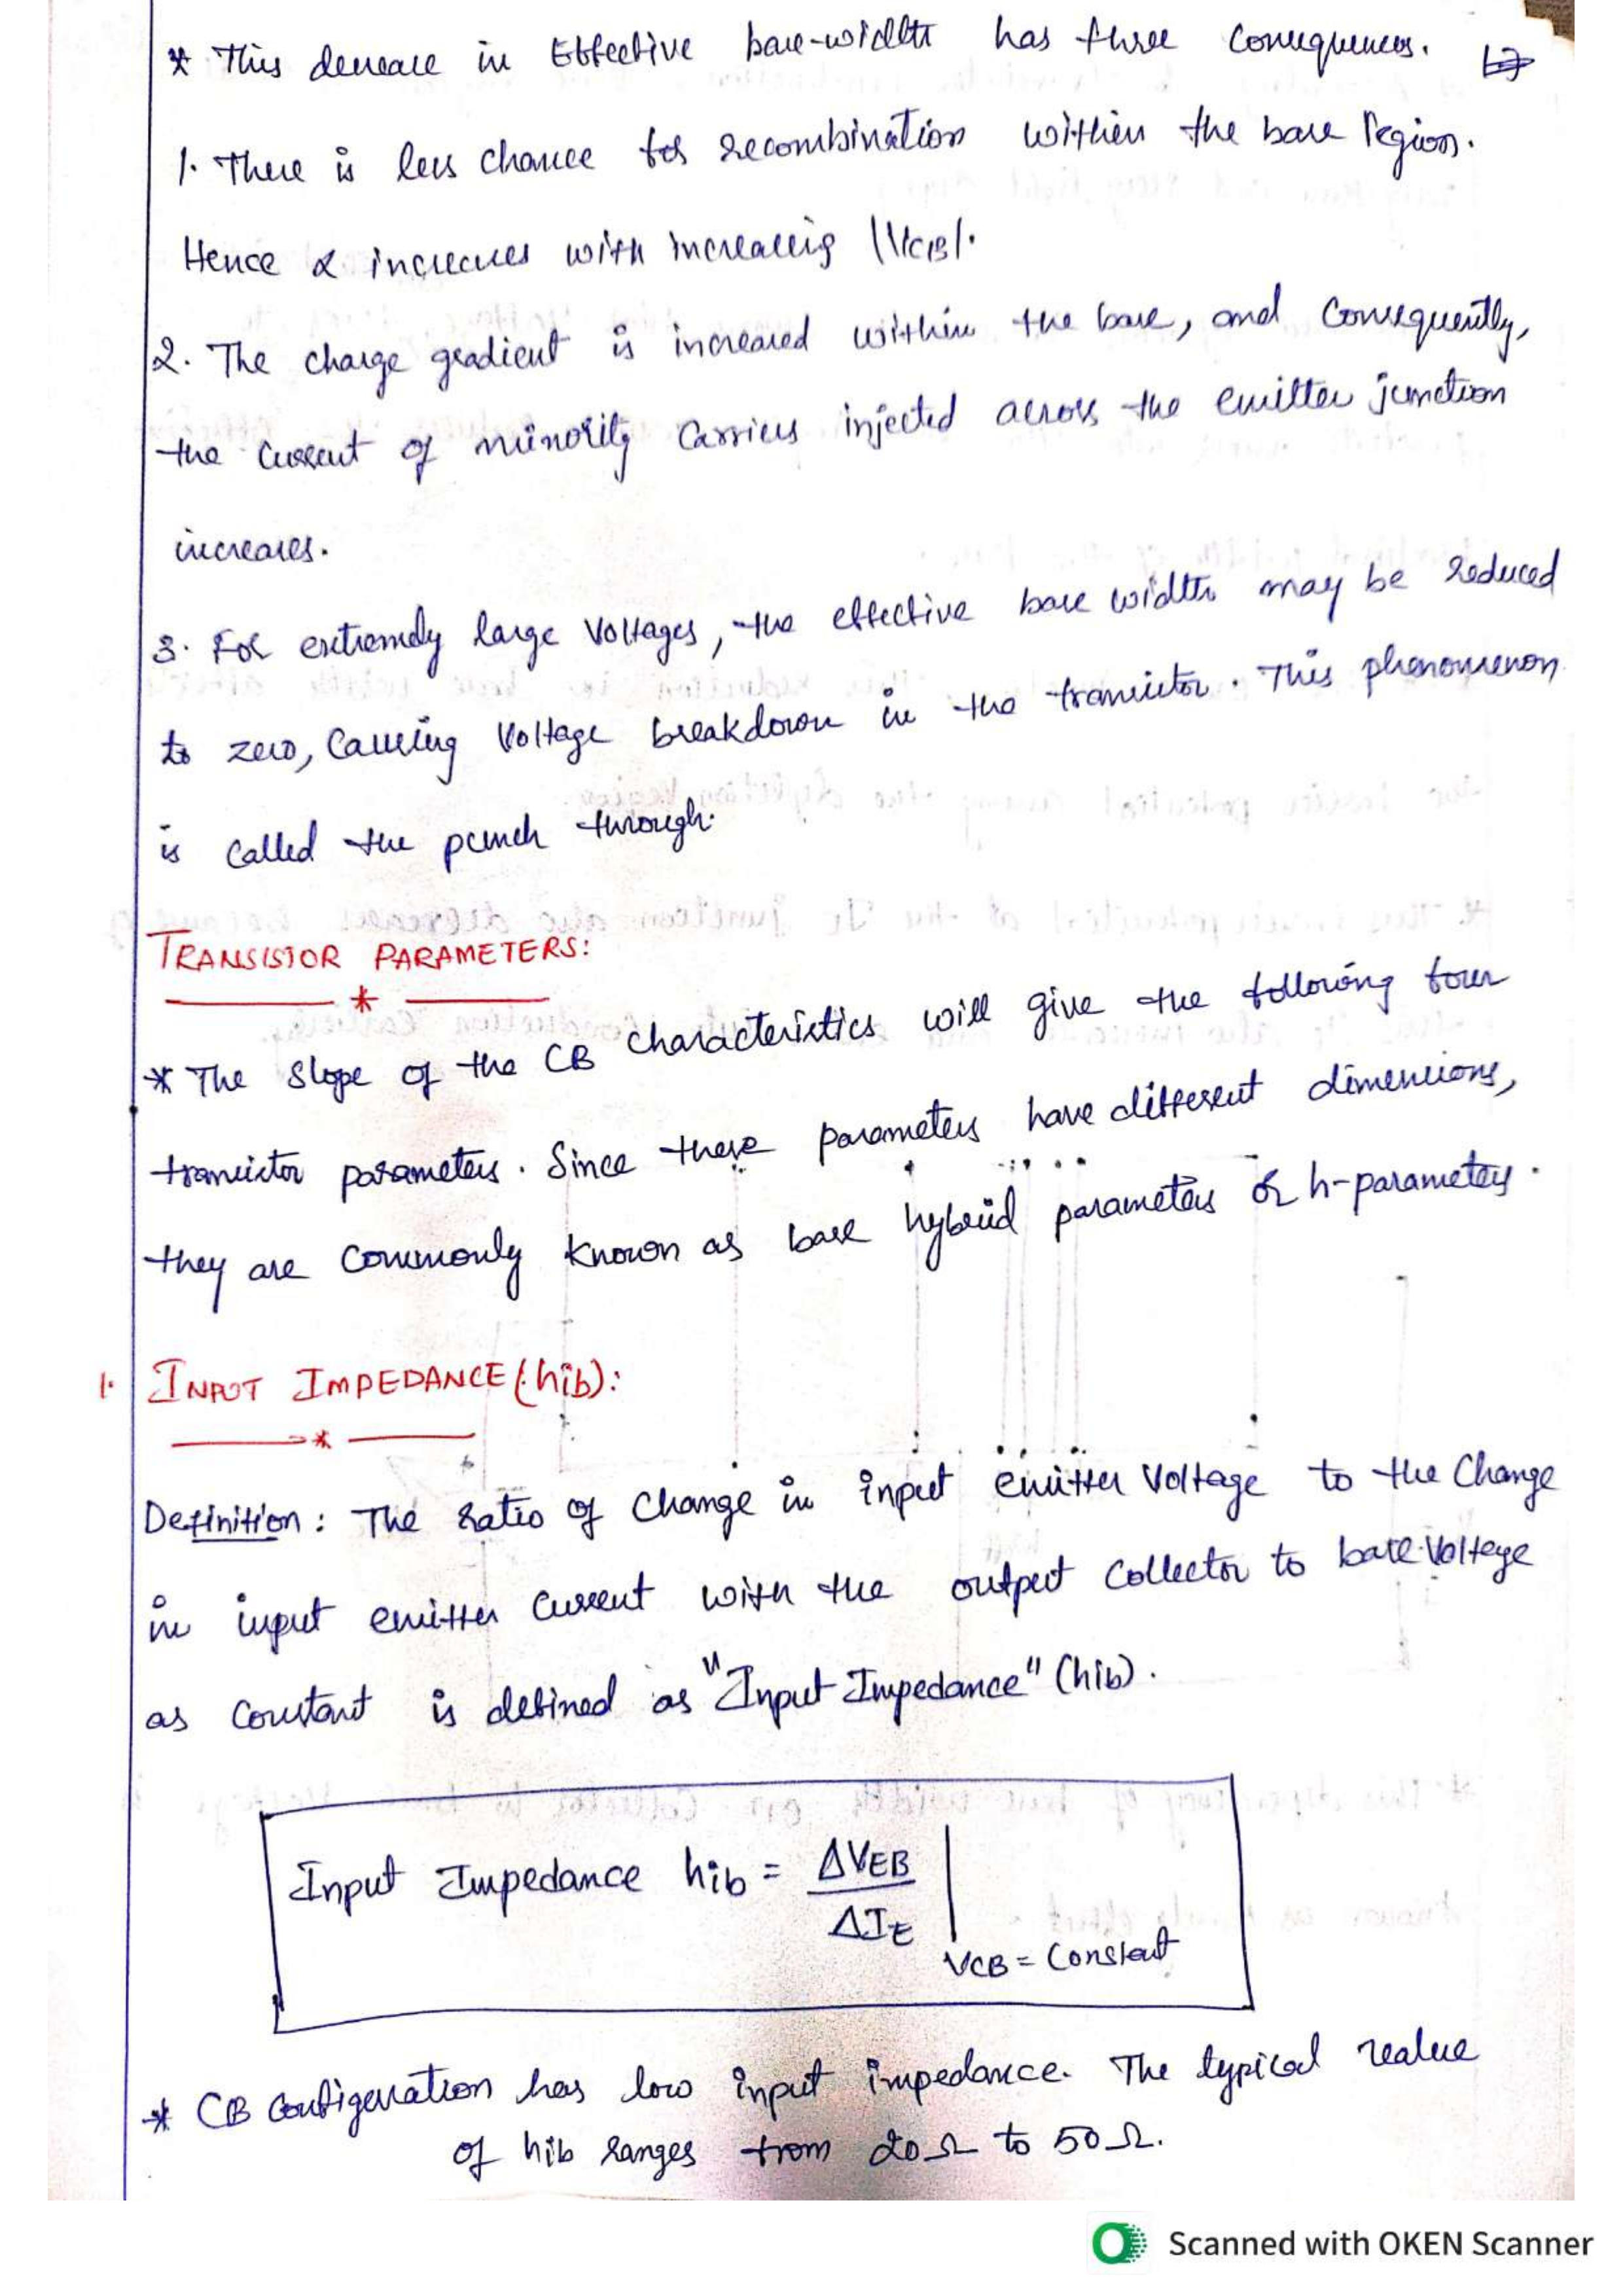 * This decrease in Effective base-width has three consequences.
1. There is less chance for recombination within the base Region.
Hence α increases with increasing |VCB|.
2. The charge gradient is increased within the base, and Consequently,
the current of minority carriers injected across the emitter junction
increases.
3. For extremely large Voltages, the effective base width may be reduced
to zero, Causing Voltage breakdown in the transistor. This phenomenon
is called the punch through.
TRANSISTOR PARAMETERS:
*
* The Slope of the CB characteristics will give the following four
transistor parameters. Since these parameters have different dimensions,
they are Commonly known as base hybrid parameters or h-parameters.
1. INPUT IMPEDANCE (hib):
*
Definition: The ratio of change in input emitter Voltage to the Change
in input emitter Current with the output Collector to base Voltage
as Constant is defined as "Input Impedance" (hib).
Input Impedance hib = ΔVEB / ΔIE | VCB = Constant
* CB Configuration has low input impedance. The typical value
of hib ranges from 20Ω to 50Ω.
Scanned with OKEN Scanner